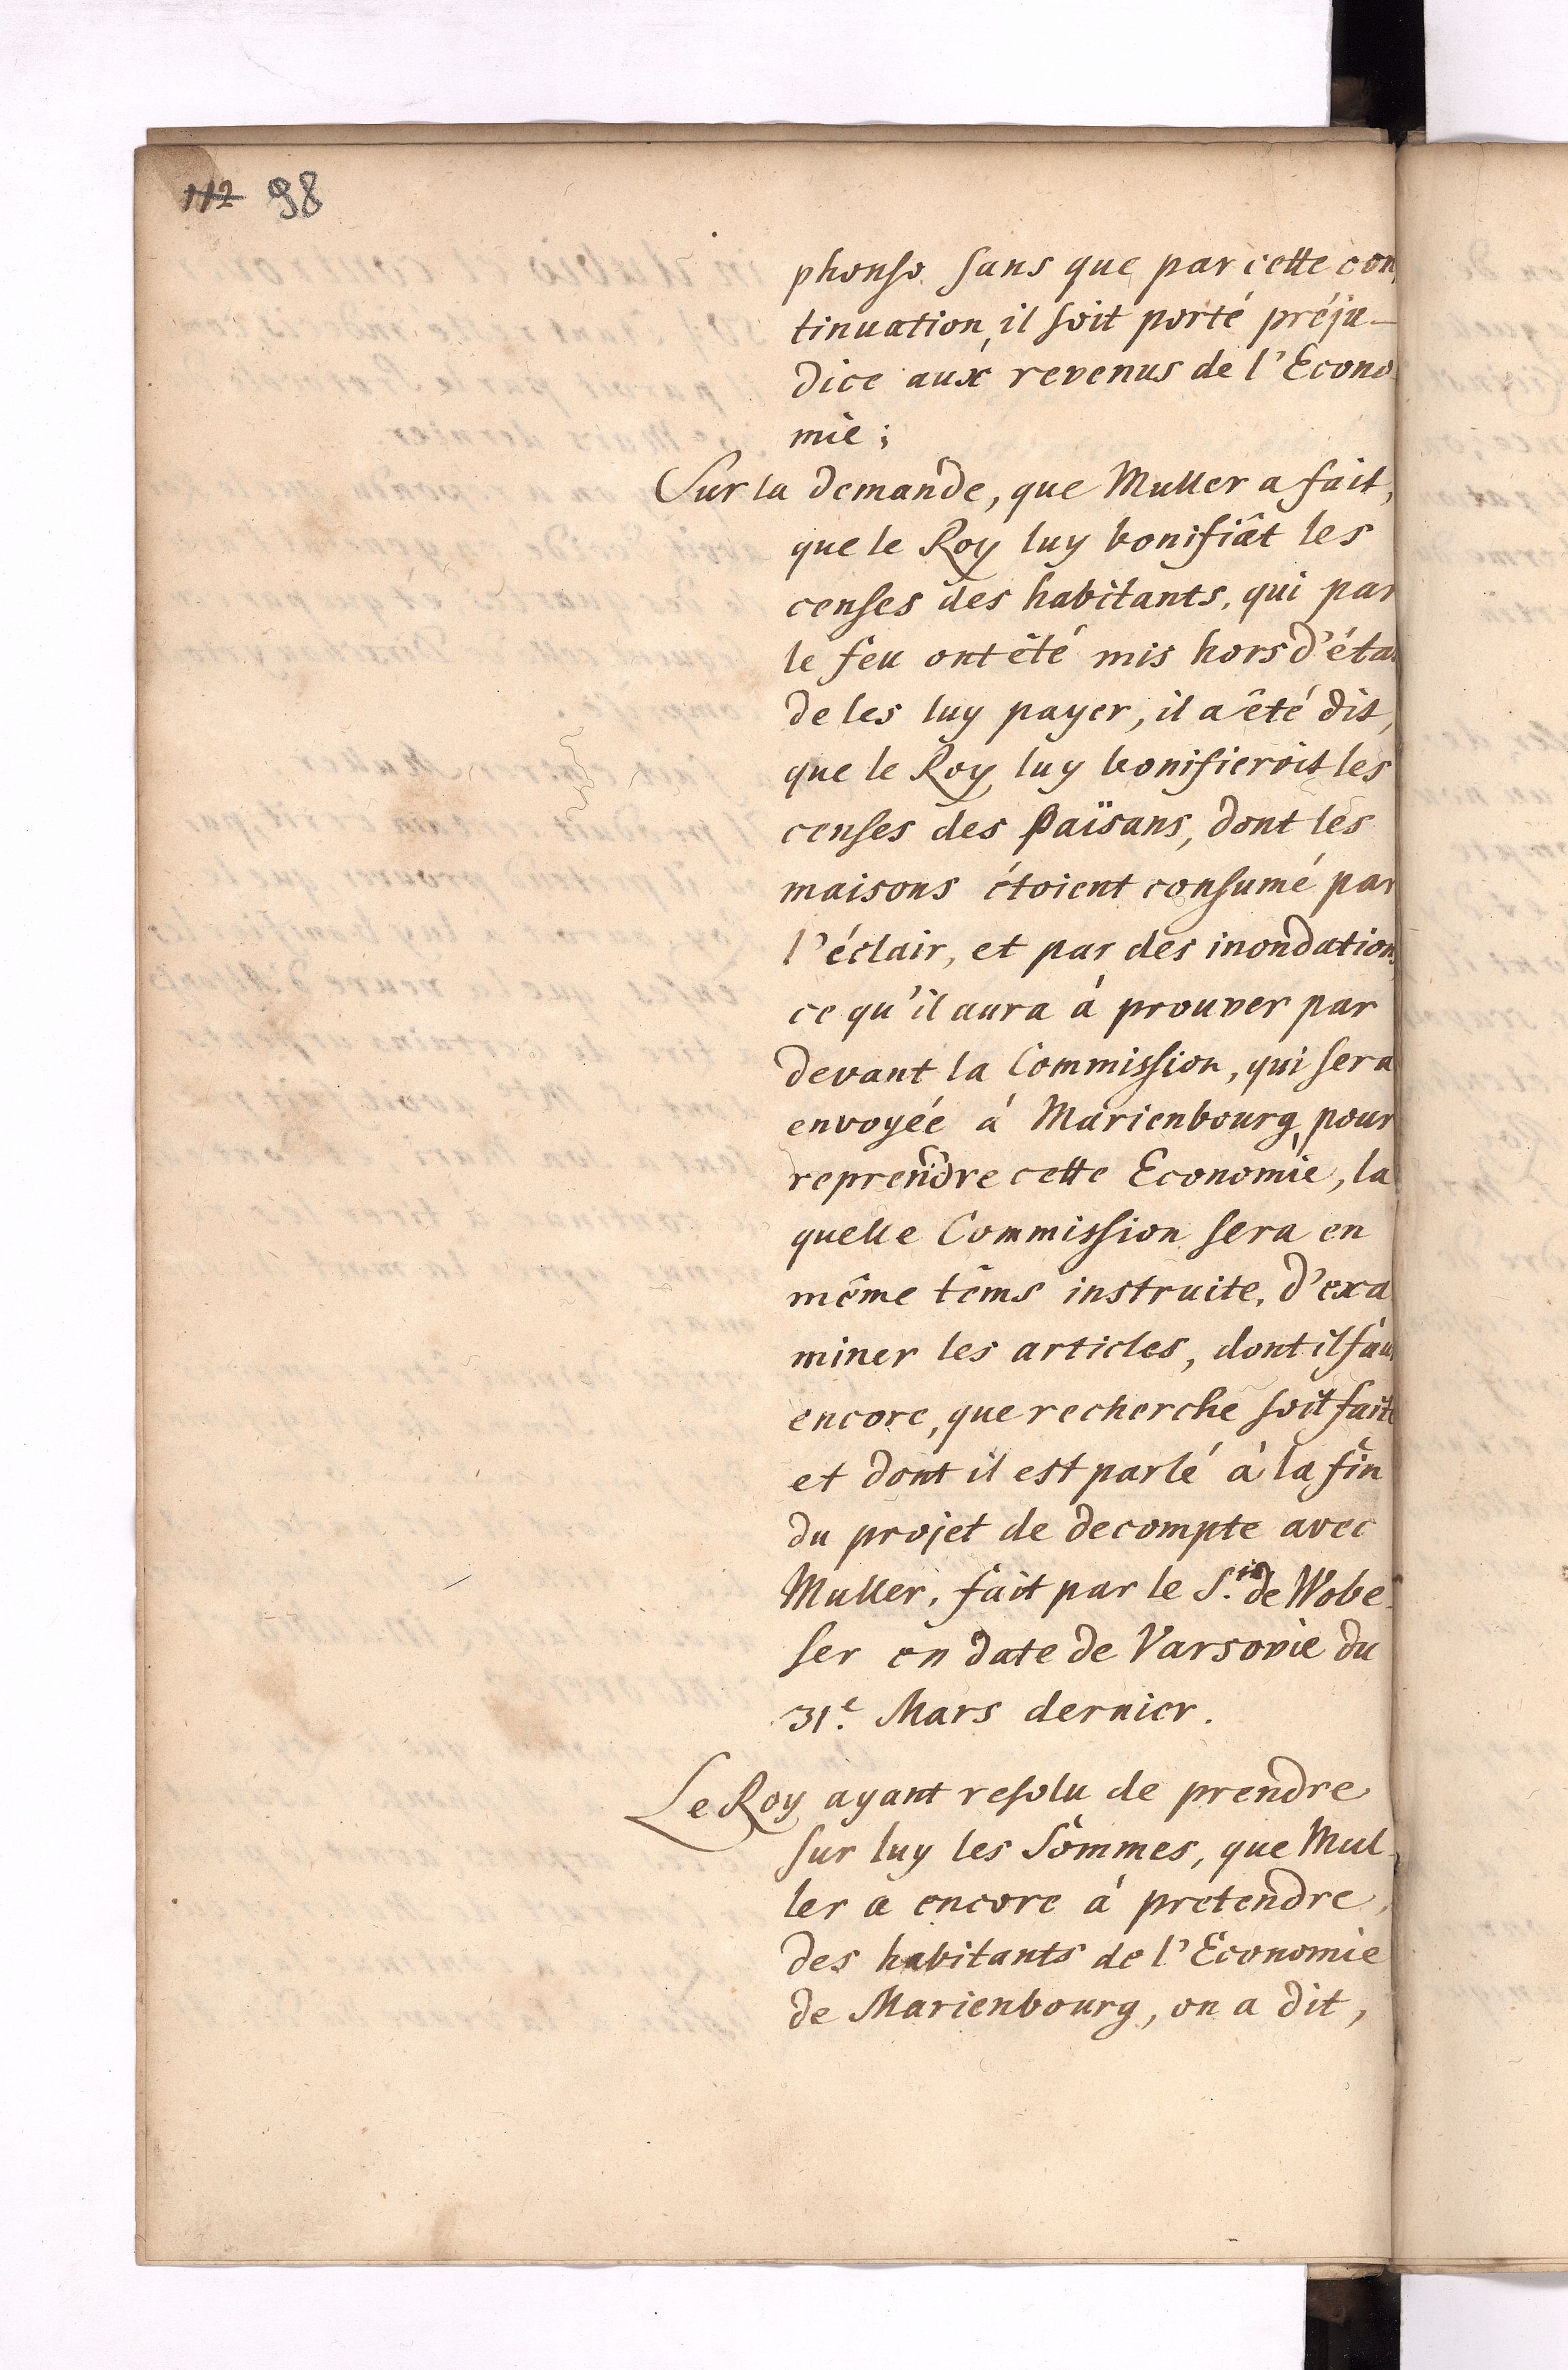 112 98
phonso sans que par cette con
tinuation, il soit porté préju-
dice aux revenus de l'Econo
mie;
Sur la demande, que Muller a fait,
que le Roy luy bonifiât les
censes des habitants, qui par
le feu ont êté mis hors d'éta
de les luy payer, il a êté dit,
que le Roy luy bonifieroit les
censes des Païsans, dont les
maisons étoient consumé par
l'éclair, et par des inondation
ce qu'il aura à prouver par
devant la Commission, qui sera
envoyée à Marienbourg, pour
reprendre cette Economie, la
quelle Commission sera en
même têms instruite, d'exa
miner les articles, dont il fau
encore, que recherche soit faite
et dont il est parlé à la fin
du projet de decompte avec
Muller, fait par le S.r de Wobe-
ser en date de Varsovie du
31.e Mars dernier.
Le Roy ayant resolu de prendre
sur luy les Sommes, que Mul-
ler a encore à pretendre,
des habitants de l'Economie
de Marienbourg, on a dit,